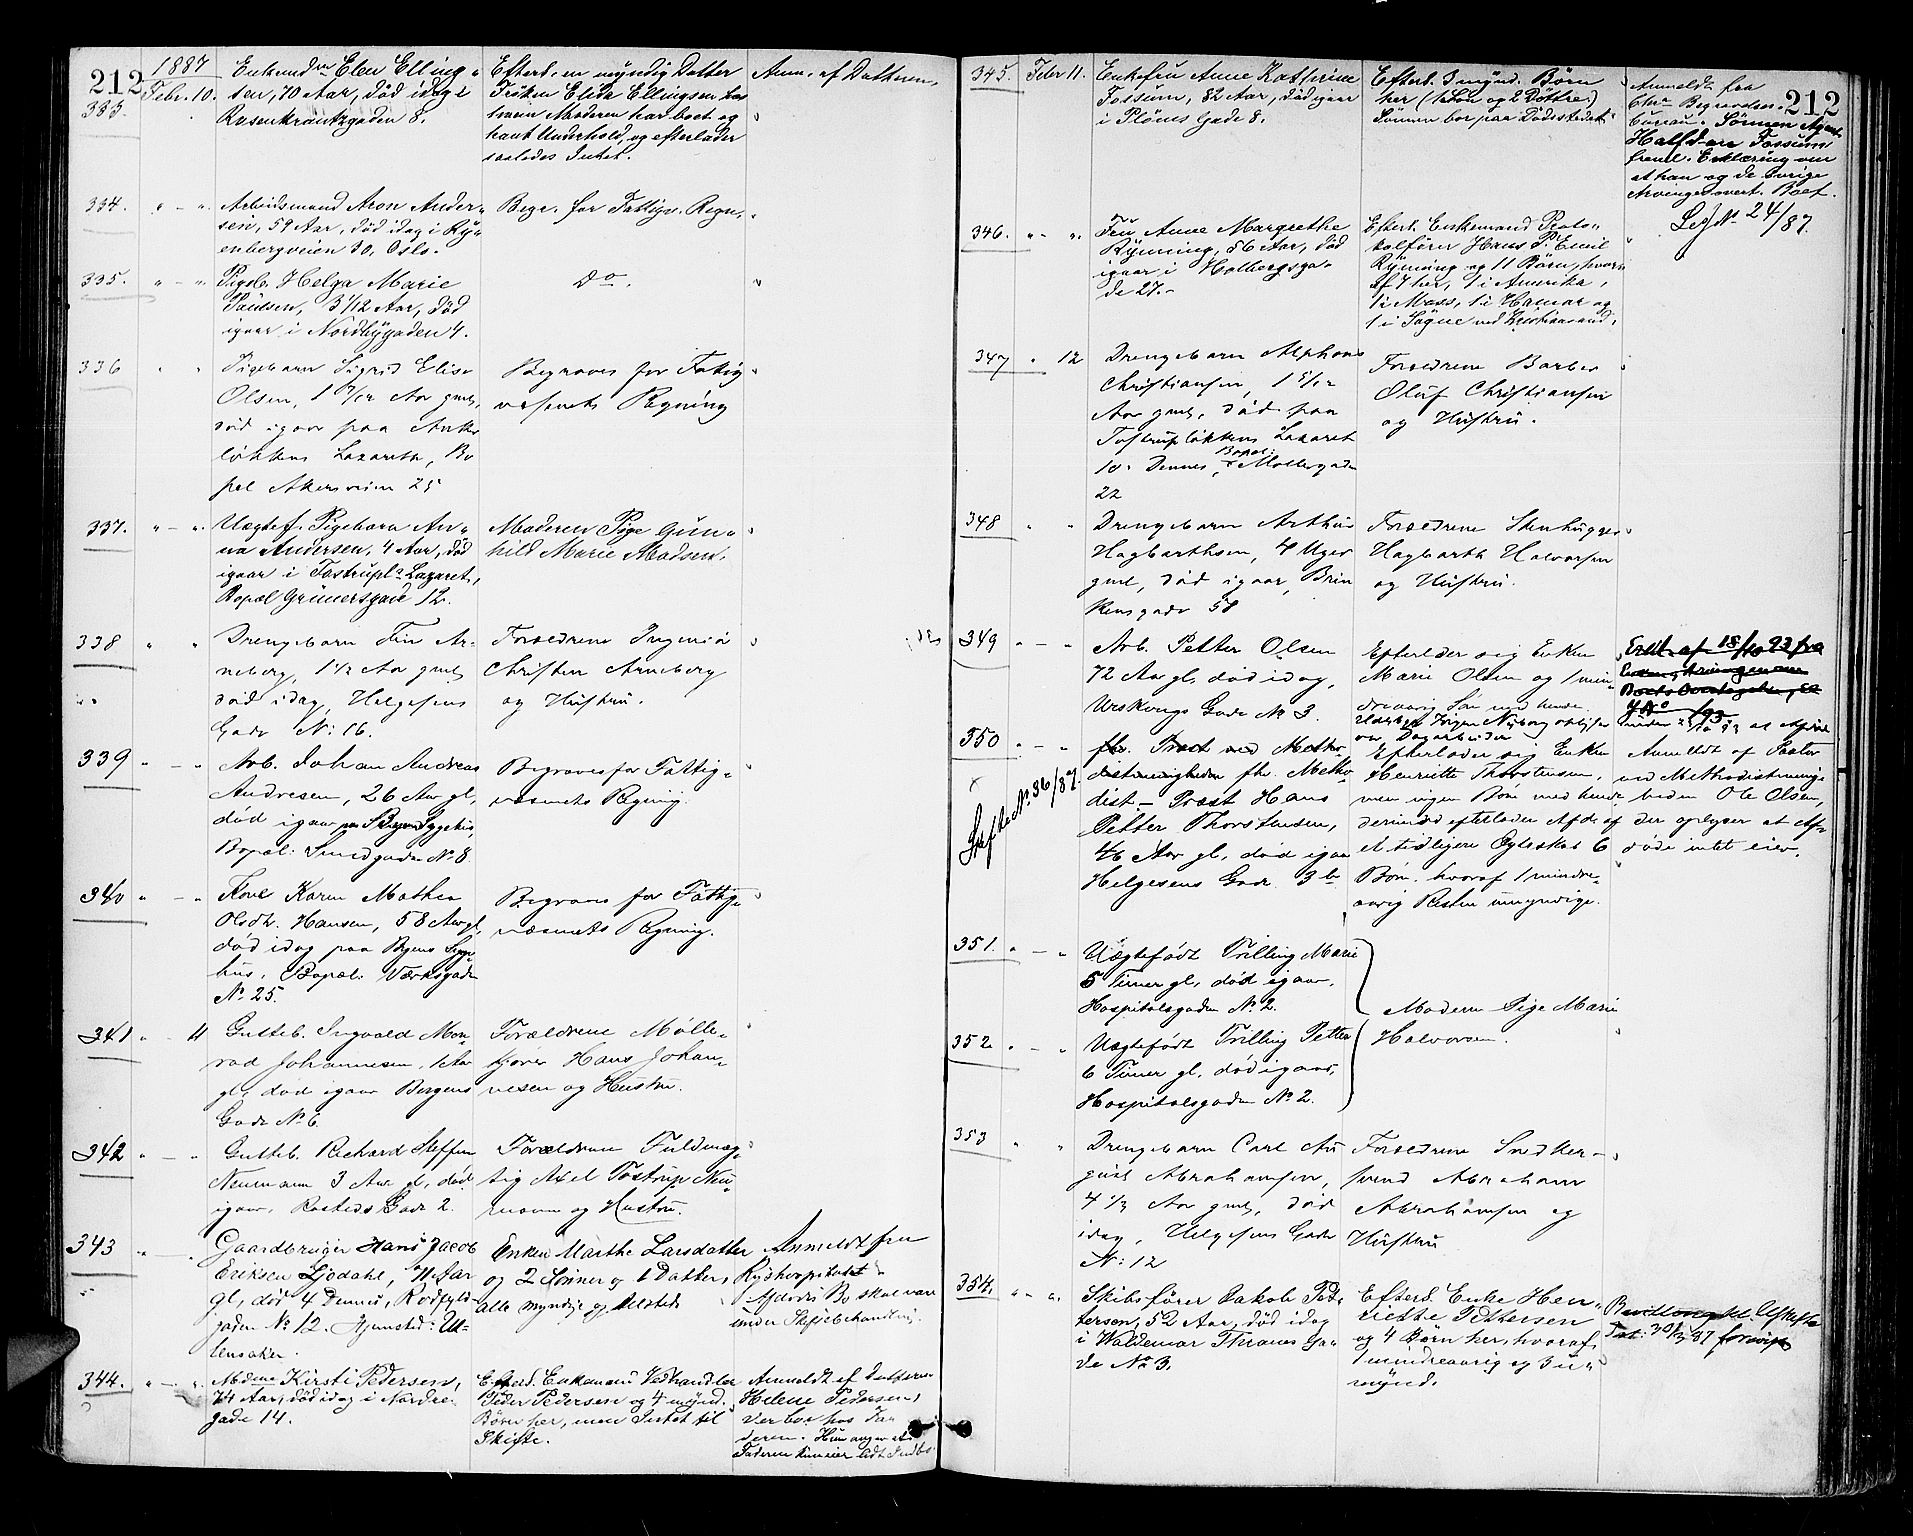 212
1887
Febr. 10.
333.
Enkemd.m Elen Elling-
sen, 70 Aar, død idag i
Rosenkrantzgaden 8.
Efterl. en myndig Datter
Frøken Elida Ellingsen hos
hvem Moderen har boet og
havt Underhold, og efterlader
saaledes Intet.
Anm. af Datteren,
334. " - "
Arbeidsmand Aron Ander-
sen, 59 Aar, død idag i Ry-
enbergveien 30, Oslo.
Begr. for Fattigv. Regn.
335. " - "
Pigeb. Helga Marie
Paulsen, 3 1/12 Aar, død
igaar i Nordbygaden 4.
Do.
336 " "
Pigebarn Sigrid Elise
Olsen, 1 7/12 Aar gml,
død igaar paa Anker
løkkens Lazareth, Bo
pæl Akersveien 25
Begraves for Fattig
væsenets Regning
337. " - "
Uægtef. Pigebarn An-
na Andersen, 4 Aar, død
igaar i Tostrupl. Lazaret,
Bopæl Grünersgade 12.
Moderen Pige Gun-
hild Marie Madsen.
338 " "
Drengebarn Finn Ar-
neberg, 1 1/2 Aar gml,
død idag, Helgesens
Gade No: 16.
Forældrene Ingeniør
Christen Arneberg
og Hustru.
339 " - "
Arb. Johan Andreas
Andresen, 26 Aar gl,
død igaar paa Byens Sygehus,
Bopæl: Smedgaden No 8.
Begraves for Fattig-
væsnets Regning.
340 " - "
Karen Mathea
Olsdtr. Hansen, 58 Aar gl,
død idag paa Byens Syge-
hus. Bopæl: Værksgaden
No 25.
Begraves for Fattig-
væsnets Regning.
341 " - 11
Gutteb. Ingvald Mon-
rad Johannesen, 1 Aar
gl, død igaar Bergens
Gade No 6.
Forældrene Mølle-
kjører Hans Johan-
nesen og Hustru.
342 " - "
Gutteb. Richard Steffen
Neumann 3 Aar gl, død
igaar, Rosteds Gade 2.
Forældrene Fuldmæg-
tig Axel Tostrup Neu-
mann og Hustru.
343 " "
Gaardbruger Hans Jacob
Eriksen Ljødahl, 71 Aar
gl, død 4 Dennes, Rodfyld-
gaden No 12. Hjemsted: Ul-
lensaker.
Enken Marthe Larsdatter
og 2 Sønner og 1 Datter,
alle myndige og tilstede
Anmeldt fra
Rigshospitalet
Afdødes Bo skal være
under Skiftebehandling.
344. " - "
Madme Kirsti Pedersen,
74 Aar, død idag i Nordre-
gade 14.
Efterl. Enkemand Vedhandler
Peder Pedersen og 4 mynd.
Børn her, men Intet til
Skifte.
Anmeldt af Datteren
Helene Pedersen,
der bor hos Fa-
deren. Hun angav at
Faderen kun eier lidt Indbo
345. Febr 11.
Enkefru Anne Kathrine
Fossum, 82 Aar, død igaar
i Pløens Gade 8.
Efterl. 3 mynd. Børn
her (1 Søn og 2 Døttre)
Sønnen bor paa Dødsstedet
Anmeldt fra
Chra Begravelses-
bureau. Sønnen Agent
Halfdan Fossum
freml. Erklæring om
at han og de øvrige
Arvinger overt. Boet.
Lgd No 24/87.
212
346. " - "
Fru Anne Margrethe
Rynning, 56 Aar, død
igaar i Holbergsga-
de 27.-
Efterl. Enkemand Proto-
kolfører Hans P. Emil
Rynning og 11 Børn, hvor-
af 7 her, 1 i Amerika,
1 i Moss, 1 i Hamar og
1 i Søgne ved Kristiansand.
347 " 12
Drengebarn Alphons
Christiansen, 1 5/12
Aar gml, død paa
Tostrupløkkens Lazaret
10. Dennes, Bopæl: Møllergaden
22
Forældrene Barber
Oluf Christiansen
og Hustru.
348 " "
Drengebarn Arthur
Hagbarthsen, 4 Uger
gml, død igaar, Brin
kensgade 58
Forældrene Stenhugger
Hagbarth Halvorsen
og Hustru.
349 " - "
Arb. Petter Olsen
72 Aar gl, død idag,
Urskougs Gade No 3.
Efterlader sig Enken
Marie Olsen og 1 min-
dreaarig Søn ved hende.
Erkl. af 18/10 93 fra
350 " - "
Skifte No. 36/87.
fhv. Præst ved Metho-
distmenigheden fhv. Metho-
dist-Præst Hans
Petter Thorstensen,
46 Aar gl, død igaar
Helgesens Gade 3b
Efterlader sig Enken
Henriette Thorstensen,
men ingen Børn med hende
derimod efterlader Afde af
et tidligere Ægteskab 6
Børn, hvoraf 1 mindre-
aarig Resten umyndige.
Anmeldt af Pastor
ved Methodistmenig-
heden Ole Olsen,
der oplyser at Af-
døde intet eier.
351. " - "
Uægtefødt Trilling Marie
5 Timer gl, død igaar,
Hospitalsgaden No 2.
Moderen Pige Marie
Halvorsen.
352 " - "
Uægtefødt Trilling Petter
6 Timer gl, død igaar,
Hospitalsgaden No 2.
353 " "
Drengebarn Carl Au
gust Abrahamsen,
4 1/2 Aar gml, død
idag, Helgesens Gade
No: 12
Forældrene Snedker-
svend Abraham
Abrahamsen og
Hustru
354. " - "
Skibsfører Jakob Ped-
tersen, 52 Aar, død idag
i Waldemar Thranes Ga-
de No 3.
Efterl. Enke Hen-
riette Pettersen
og 4 Børn her, hvoraf
1 mindreaarig og 3 u-
mynd.